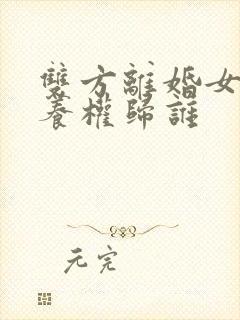 雙方離婚女
養權歸誰
元完